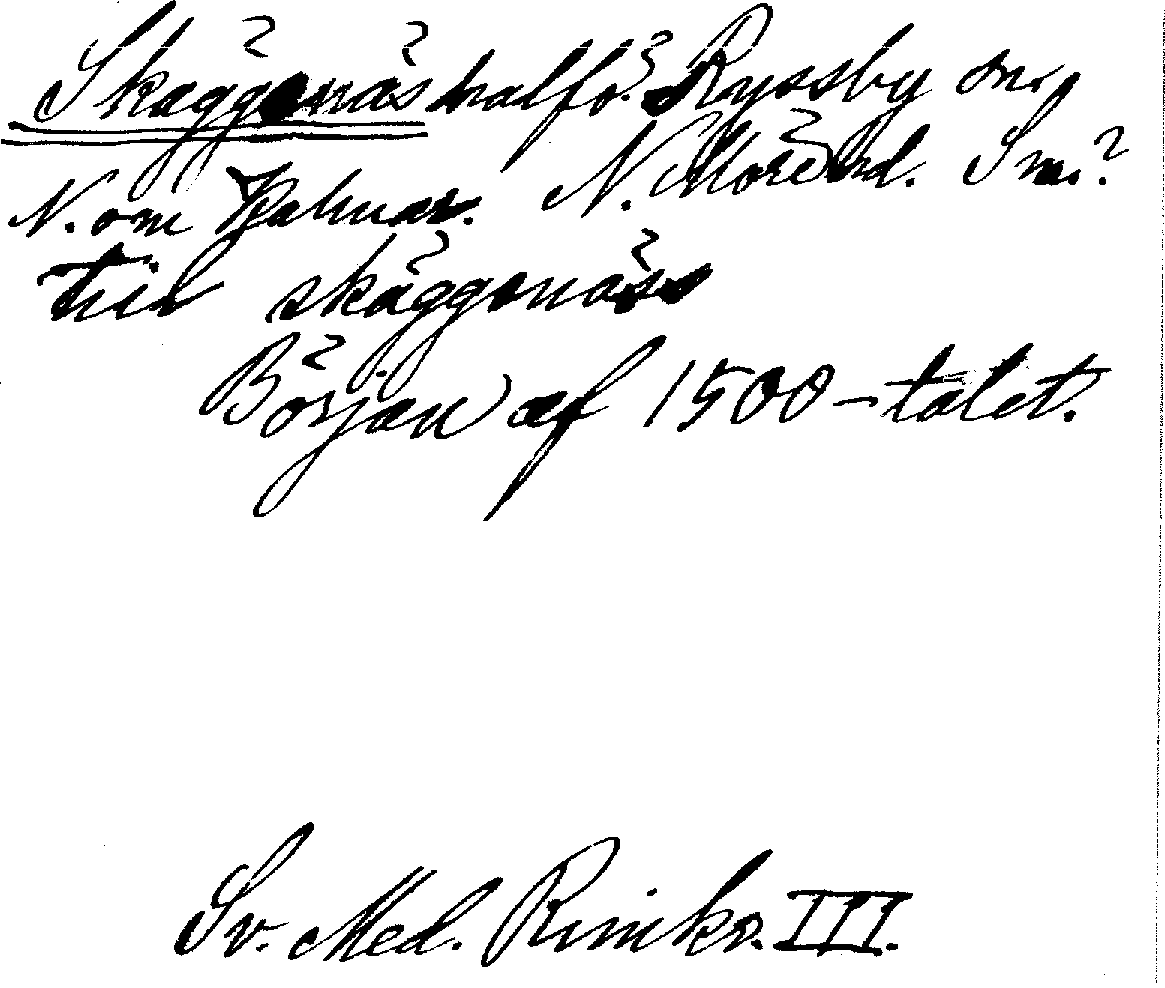 Skäggenäs halfö. Ryssby sn,
N. om Kalmar. N. Möre hd. Sm.?
till skäggenäss
Början af 1500-talet.
Sv. Med. Rimkr. III.